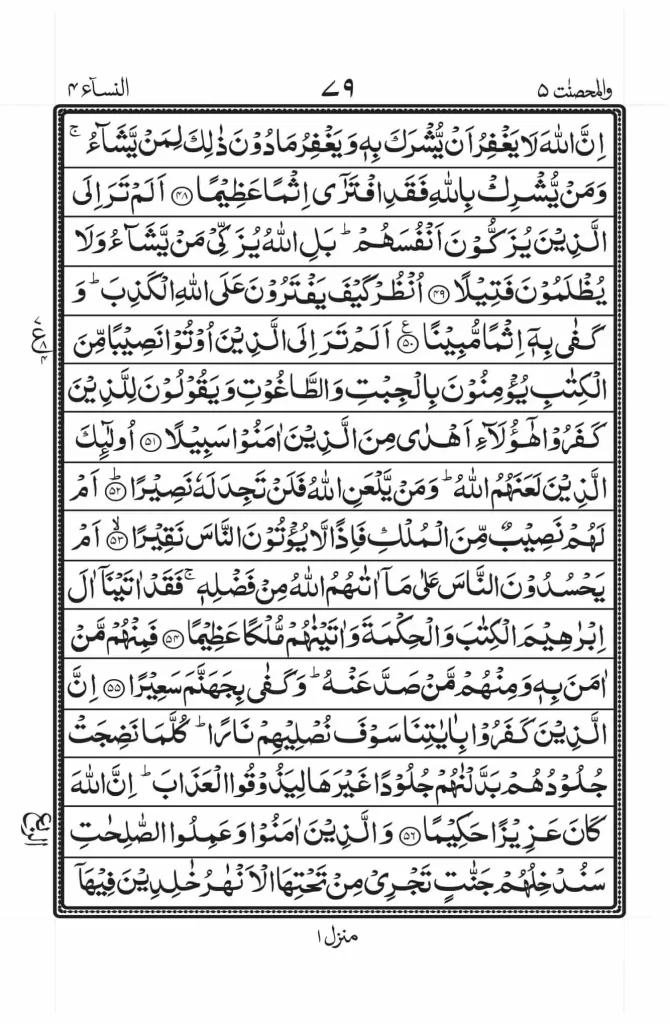 والمحصنت ۵ ۷۹ النسآء ۴
اِنَّ اللّٰهَ لَا يَغْفِرُ اَنْ يُّشْرَكَ بِهٖ وَيَغْفِرُ مَا دُوْنَ ذٰلِكَ لِمَنْ يَّشَآءُ ۚ
وَمَنْ يُّشْرِكْ بِاللّٰهِ فَقَدِ افْتَرٰٓى اِثْمًا عَظِيْمًا ﴿۴۸﴾ اَلَمْ تَرَ اِلَى
الَّذِيْنَ يُزَكُّوْنَ اَنْفُسَهُمْ ؕ بَلِ اللّٰهُ يُزَكِّيْ مَنْ يَّشَآءُ وَلَا
يُظْلَمُوْنَ فَتِيْلًا ﴿۴۹﴾ اُنْظُرْ كَيْفَ يَفْتَرُوْنَ عَلَى اللّٰهِ الْكَذِبَ ؕ وَ
كَفٰى بِهٖۤ اِثْمًا مُّبِيْنًا ﴿۵۰﴾ ع اَلَمْ تَرَ اِلَى الَّذِيْنَ اُوْتُوْا نَصِيْبًا مِّنَ
الْكِتٰبِ يُؤْمِنُوْنَ بِالْجِبْتِ وَالطَّاغُوْتِ وَيَقُوْلُوْنَ لِلَّذِيْنَ
كَفَرُوْا هٰٓؤُلَآءِ اَهْدٰى مِنَ الَّذِيْنَ اٰمَنُوْا سَبِيْلًا ﴿۵۱﴾ اُولٰٓئِكَ
الَّذِيْنَ لَعَنَهُمُ اللّٰهُ ؕ وَمَنْ يَّلْعَنِ اللّٰهُ فَلَنْ تَجِدَ لَهٗ نَصِيْرًا ﴿۵۲﴾ ؕ اَمْ
لَهُمْ نَصِيْبٌ مِّنَ الْمُلْكِ فَاِذًا لَّا يُؤْتُوْنَ النَّاسَ نَقِيْرًا ﴿۵۳﴾ ۙ اَمْ
يَحْسُدُوْنَ النَّاسَ عَلٰى مَاۤ اٰتٰىهُمُ اللّٰهُ مِنْ فَضْلِهٖ ۚ فَقَدْ اٰتَيْنَاۤ اٰلَ
اِبْرٰهِيْمَ الْكِتٰبَ وَالْحِكْمَةَ وَاٰتَيْنٰهُمْ مُّلْكًا عَظِيْمًا ﴿۵۴﴾ فَمِنْهُمْ مَّنْ
اٰمَنَ بِهٖ وَمِنْهُمْ مَّنْ صَدَّ عَنْهُ ؕ وَكَفٰى بِجَهَنَّمَ سَعِيْرًا ﴿۵۵﴾ اِنَّ
الَّذِيْنَ كَفَرُوْا بِاٰيٰتِنَا سَوْفَ نُصْلِيْهِمْ نَارًا ؕ كُلَّمَا نَضِجَتْ
جُلُوْدُهُمْ بَدَّلْنٰهُمْ جُلُوْدًا غَيْرَهَا لِيَذُوْقُوا الْعَذَابَ ؕ اِنَّ اللّٰهَ
كَانَ عَزِيْزًا حَكِيْمًا ﴿۵۶﴾ وَالَّذِيْنَ اٰمَنُوْا وَعَمِلُوا الصّٰلِحٰتِ
سَنُدْخِلُهُمْ جَنّٰتٍ تَجْرِيْ مِنْ تَحْتِهَا الْاَنْهٰرُ خٰلِدِيْنَ فِيْهَاۤ
منزل ۱
الربع